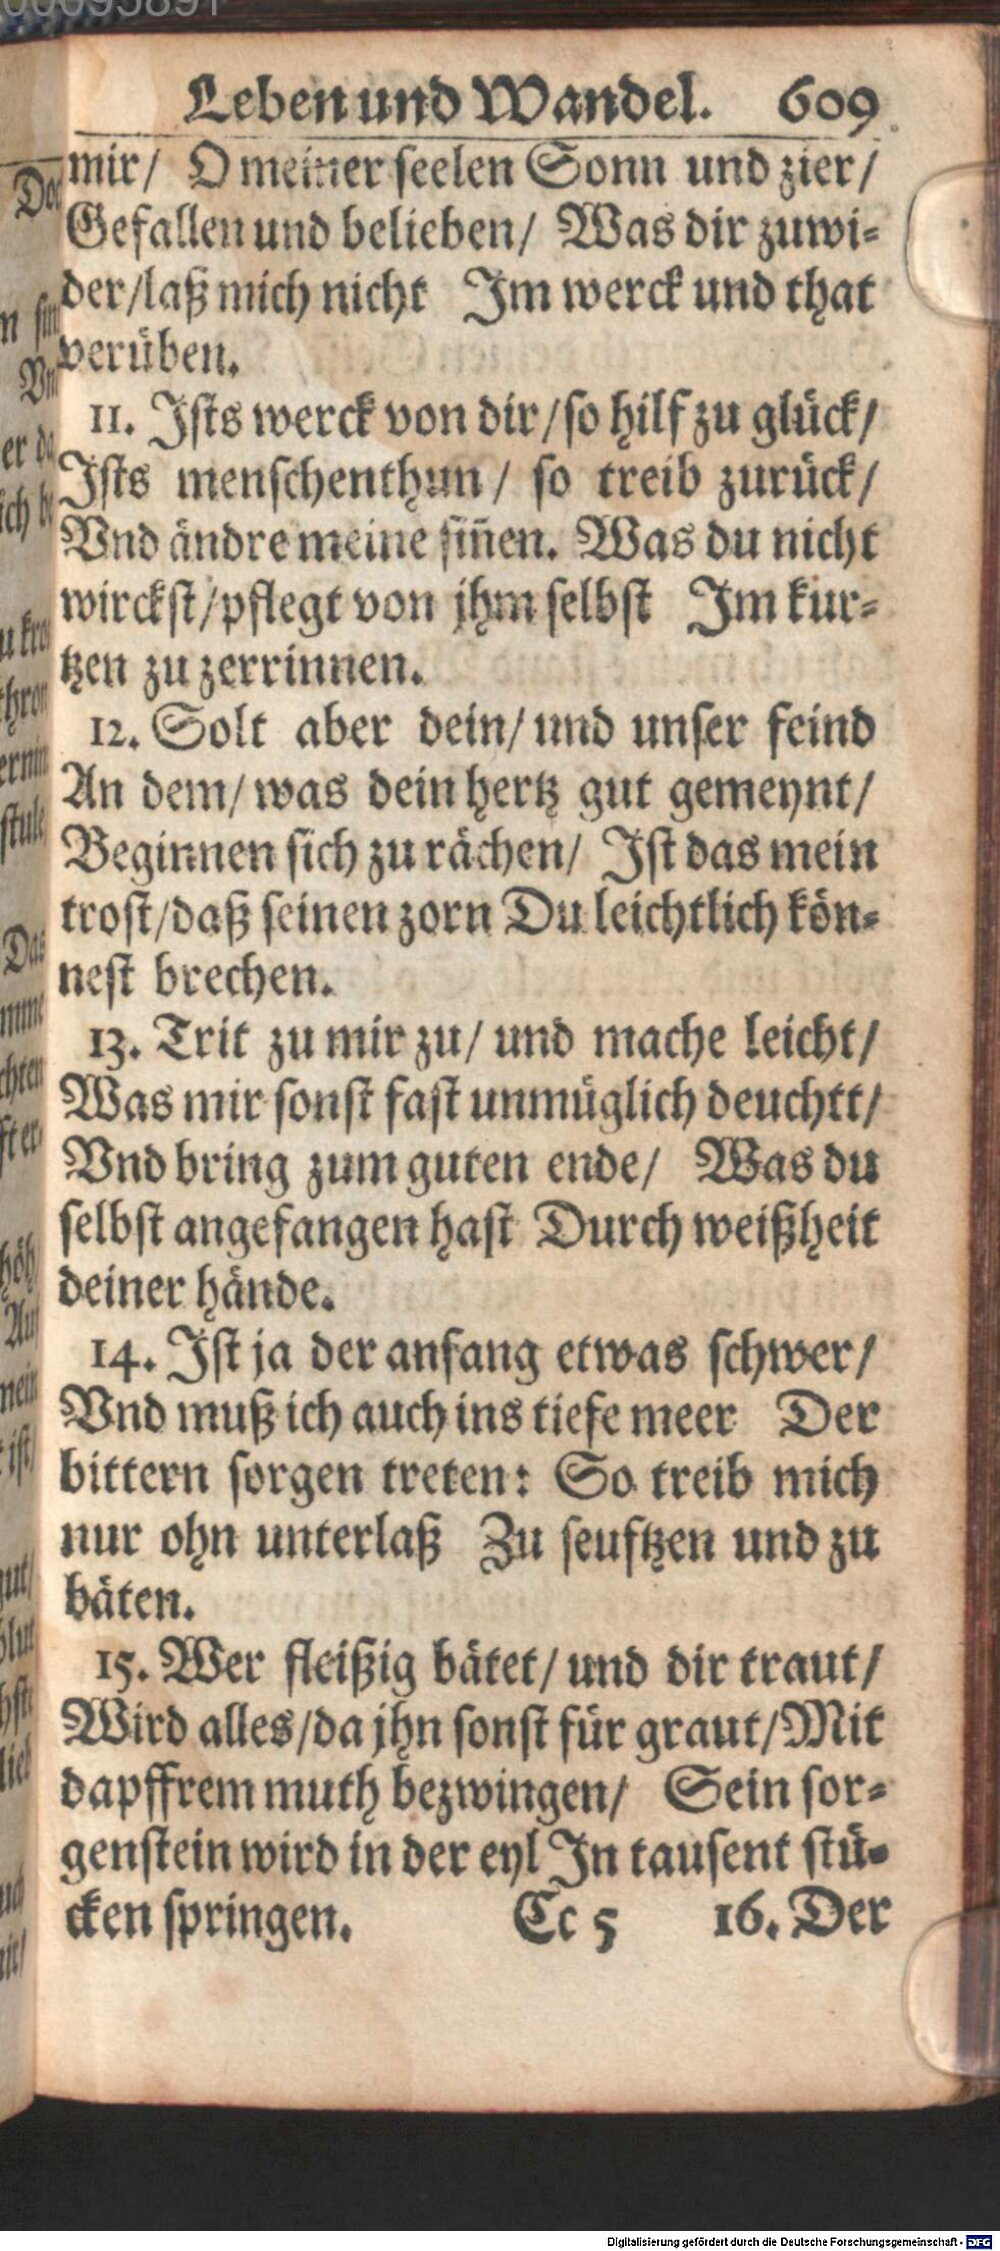 Leben und Wandel. 609
mir/ O meiner seelen Sonn und zier/
Gefallen und belieben/ Was dir zuwi-
der/laß mich nicht Im werck und that
verüben.
11. Ists werck von dir/so hilf zu glück/
Ists menschenthun/ so treib zurück/
Vnd ändre meine siñen. Was du nicht
wirckst/pflegt von jhm selbst Im kur-
tzen zu zerrinnen.
12. Solt aber dein/ und unser feind
An dem/ was dein hertz gut gemeynt/
Beginnen sich zu rächen/ Ist das mein
trost/daß seinen zorn Du leichtlich kön-
nest brechen.
13. Trit zu mir zu/ und mache leicht/
Was mir sonst fast unmüglich deuchtt/
Vnd bring zum guten ende/ Was du
selbst angefangen hast Durch weißheit
deiner hände.
14. Ist ja der anfang etwas schwer/
Vnd muß ich auch ins tiefe meer Der
bittern sorgen treten: So treib mich
nur ohn unterlaß Zu seuftzen und zu
bäten.
15. Wer fleißig bätet/ und dir traut/
Wird alles/da jhn sonst für graut/Mit
dapffrem muth bezwingen/ Sein sor-
genstein wird in der eyl In tausent stü-
cken springen. Cc 5 16. Der
Digitalisierung gefördert durch die Deutsche Forschungsgemeinschaft - DFG